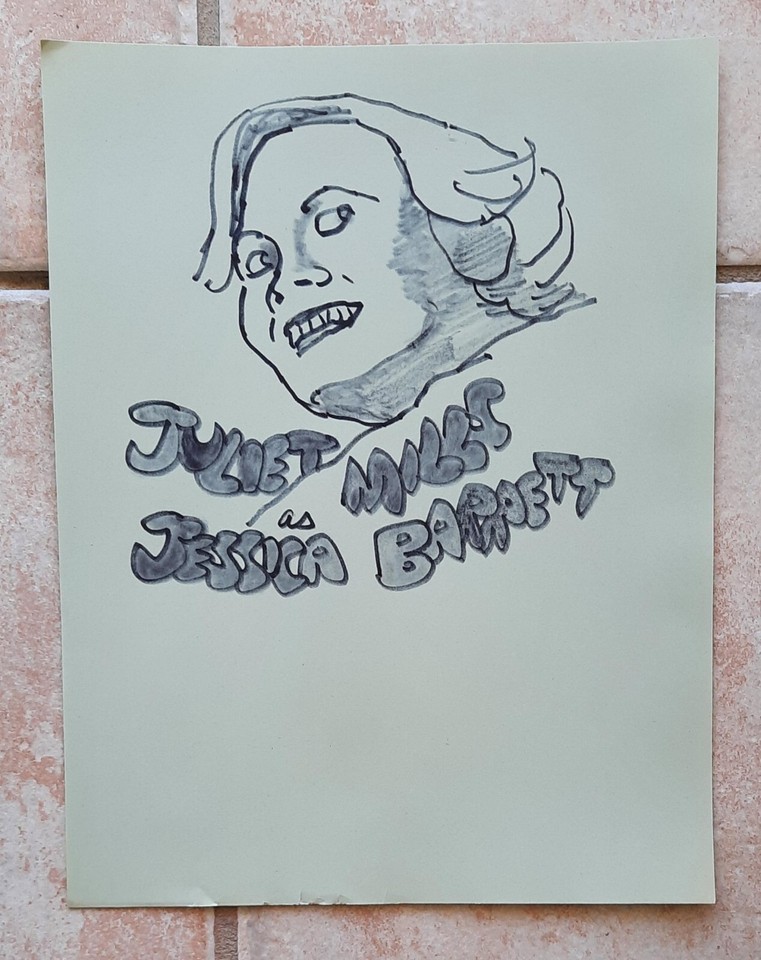 JULIET MILLS
as
JESSICA BARRETT